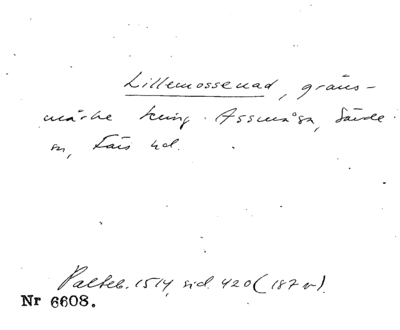 Lillemossenad, gräns-
märke kring Assmåsa, Sövde
sn, Färs hd.
Palteb. 1514, sid. 420 (187 v).
Nr 6608.